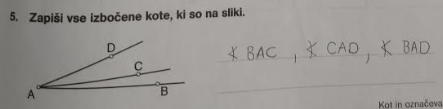 5. Zapiši vse izbočene kote, ki so na sliki.
D
C
A
B
∢ BAC, ∢ CAD, ∢ BAD
Kot in označeva